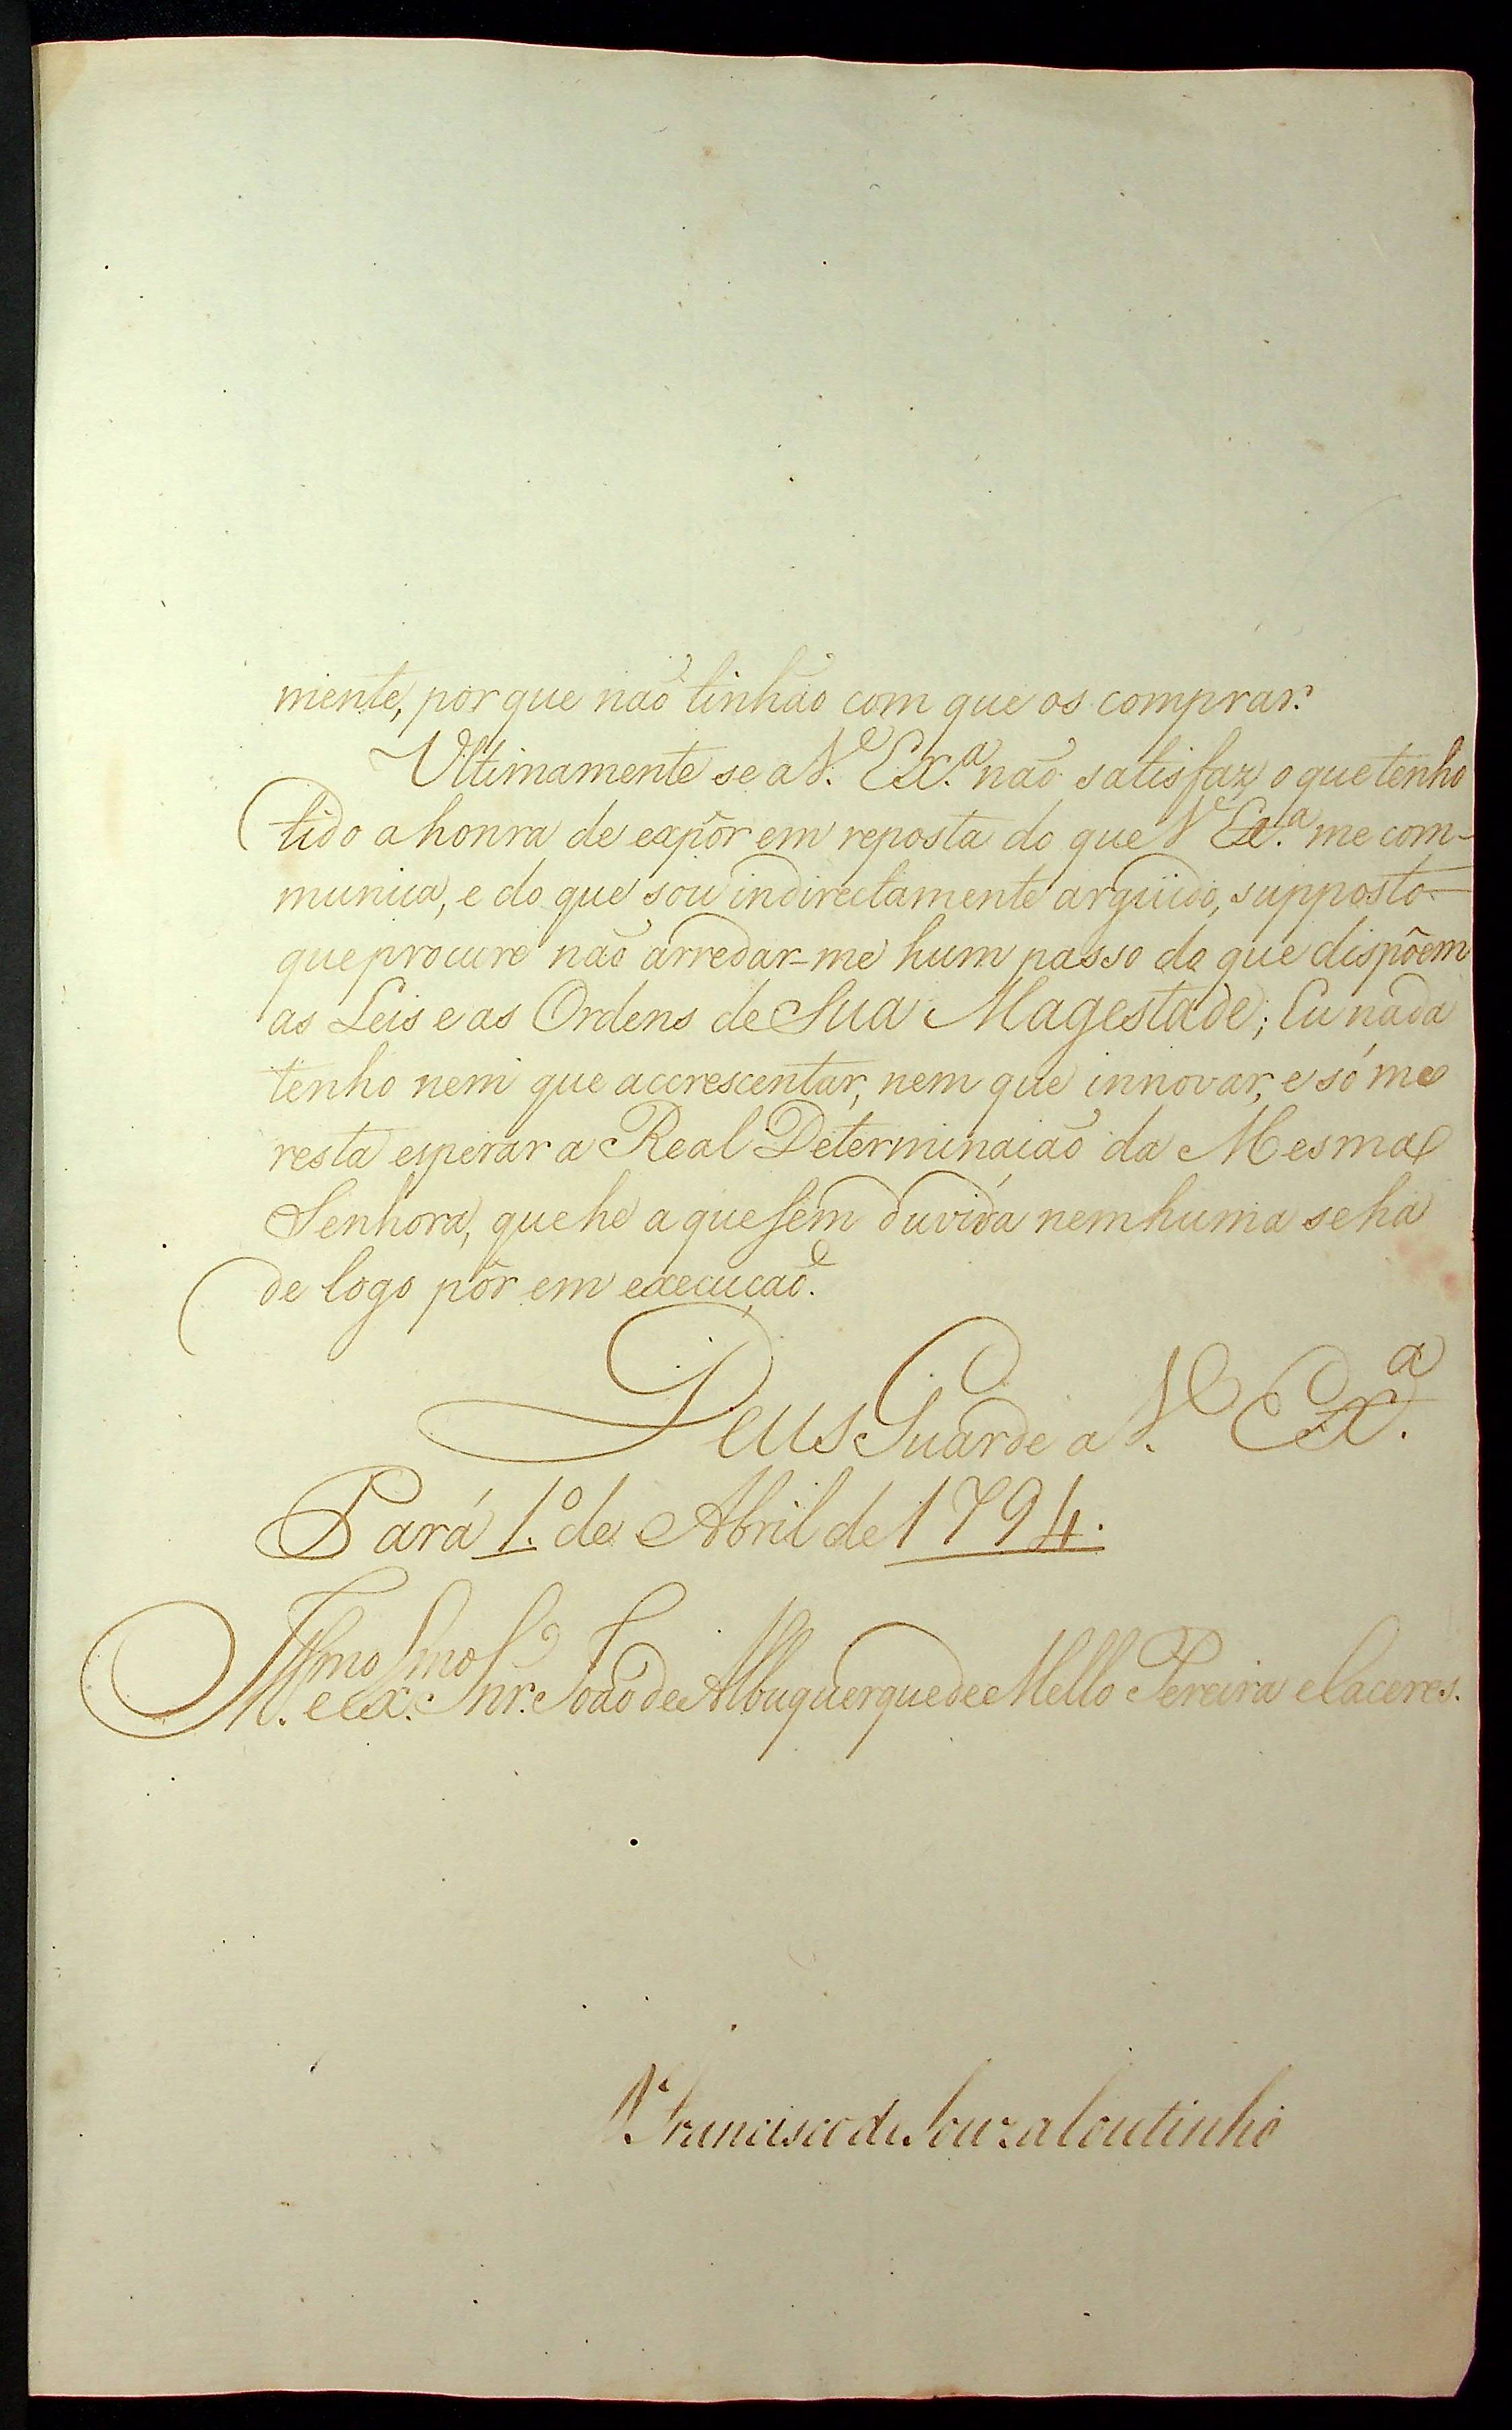 mente, porque não tinhão com que os comprar.
Ultimamente se a V. Ex.ª não satisfaz o que tenho
tido a honra de expôr em reposta do que V. Ex.ª me com-
munica, e do que sou indirectamente argüido, supposto
que procure não arredar-me hum passo do que dispõem
as Leis e as Ordens de Sua Magestade; Eu nada
tenho nem que accrescentar, nem que innovar, e só me
resta esperar a Real Determinação da Mesma
Senhora, que he a que sem duvida nemhuma se ha
de logo pôr em execução.
Deus Guarde a V. Ex.ª
Pará 1.º de Abril de 1794.
Ill.mo e Ex.mo Snr. João de Albuquerque de Mello Pereira e Caceres.
D. Francisco de Souza Coutinho